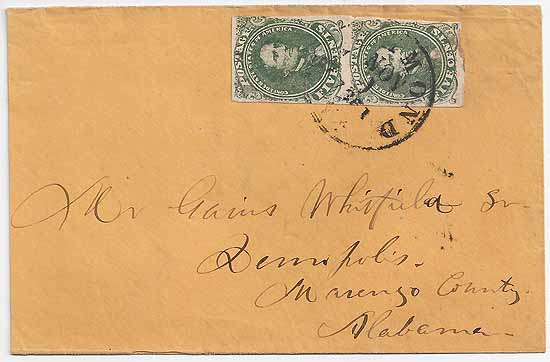 POSTAGE
CONFEDERATE STATES OF AMERICA
FIVE CENTS
POSTAGE
CONFEDERATE STATES OF AMERICA
FIVE CENTS
MOND
NOV
Mr Gaius Whitfield Sr
Demopolis.
Marengo County
Alabama